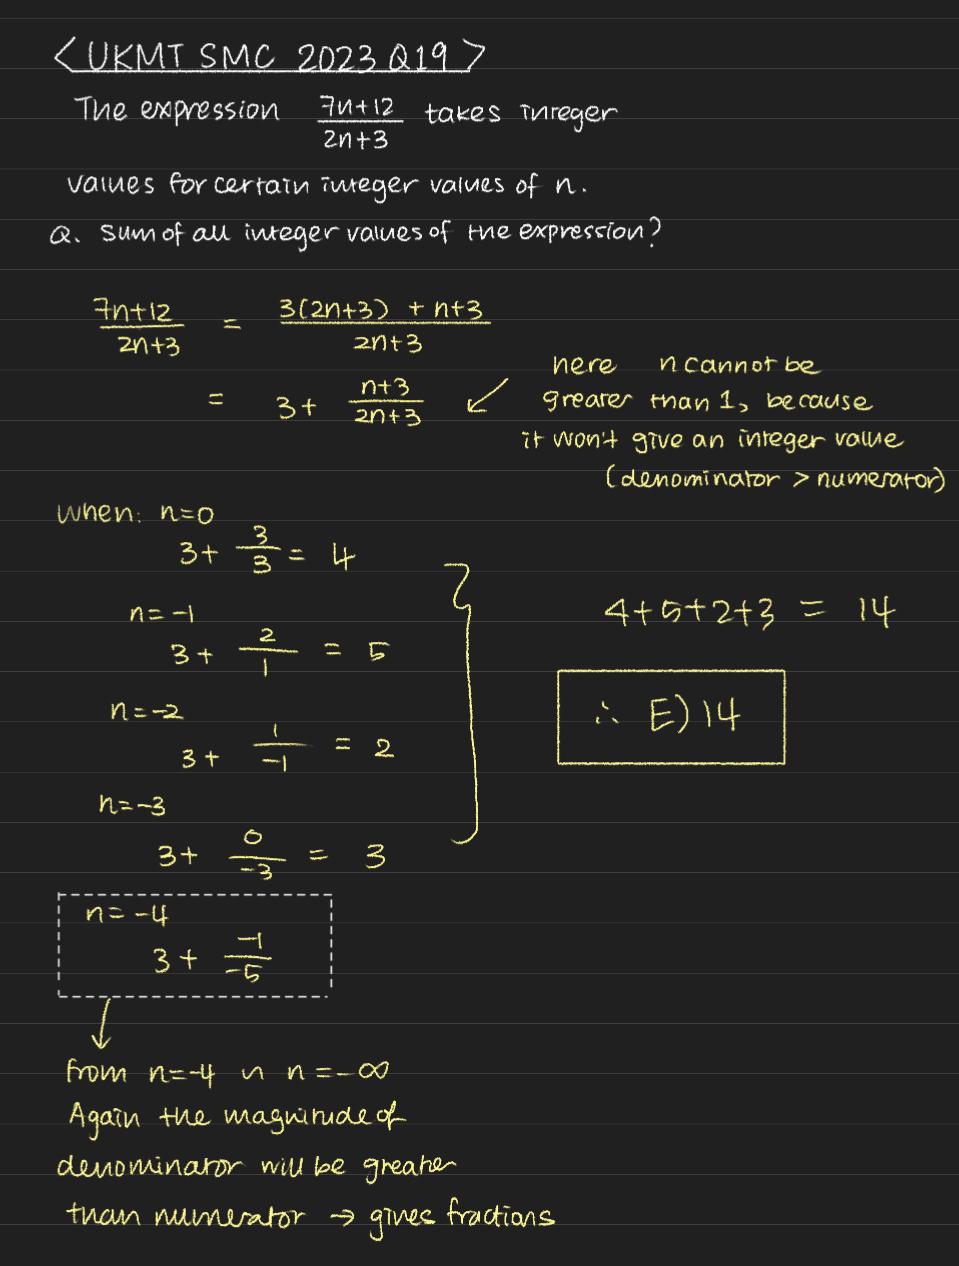 <UKMT SMC 2023 Q19>
The expression (7n+12)/(2n+3) takes integer
values for certain integer values of n.
Q. Sum of all integer values of the expression?
(7n+12)/(2n+3) = (3(2n+3) + n+3)/(2n+3)
= 3+ (n+3)/(2n+3) ↙
here n cannot be
greater than 1, because
it won't give an integer value
(denominator > numerator)
when: n=0
3+ 3/3 = 4
n=-1
3+ 2/1 = 5
n=-2
3+ 1/-1 = 2
n=-3
3+ 0/-3 = 3
4+5+2+3 = 14
∴ E) 14
n=-4
3+ -1/-5
from n=-4 ~ n=-∞
Again the magnitude of
denominator will be greater
than numerator → gives fractions